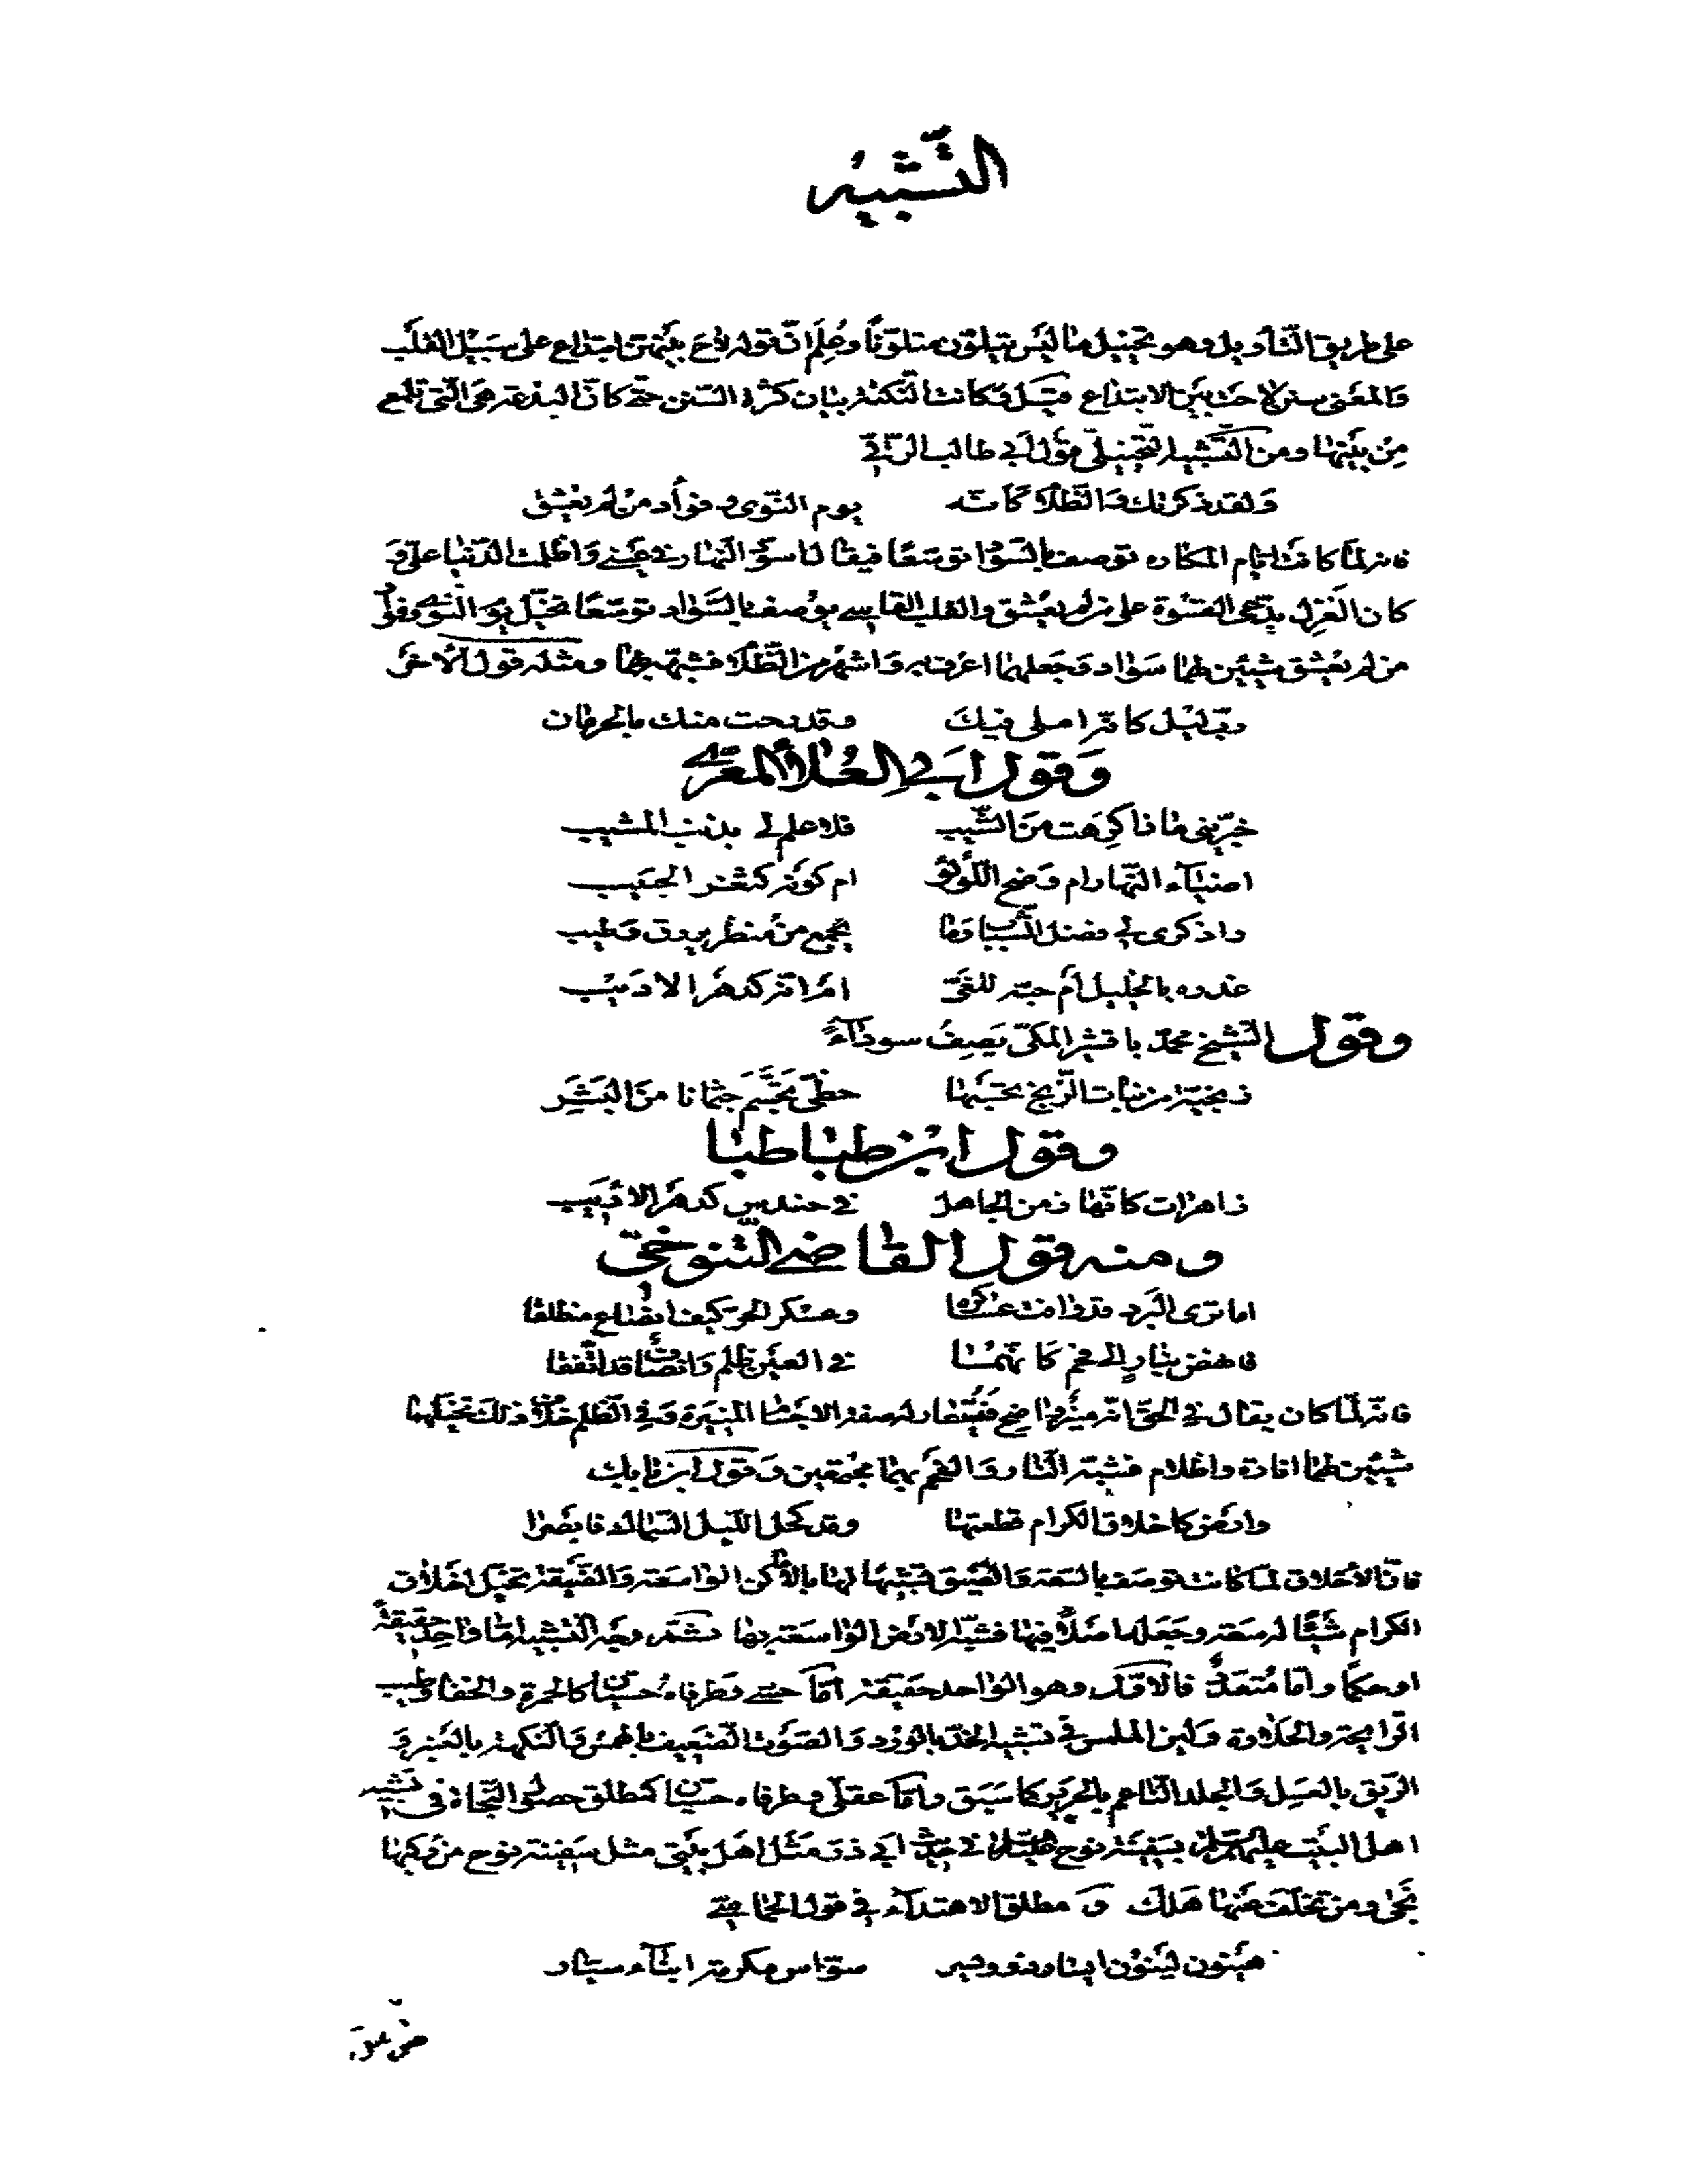 التشبيه
على طريق التأويل وهو تخييل ما ليس بمتلون متلونا وعلم ان قوله لاح بينهن ابتداع على سبيل القلب
والمعنى سنن لاحت بين الابتداع قيل فكانت النكتة بيان كثرة السنن حتى كان البدعة هي التي تلمع
من بينها ومن التشبيه التخييلي قول ابي طالب الرقي
ولقد ذكرتك والظلام كانه يوم النوى وفؤاد من لم يعشق
فانه لما كانت ايام المكاره توصف بالسواد توسعا فيقال اسود النهار في عيني واظلمت الدنيا علي و
كان الغزل يدعي القسوة على من لم يعشق والقلب القاسي يوصف بالسواد توسعا تخيل يوم النوى وفؤاد
من لم يعشق شيئين لهما سواد وجعلهما اعرف به واشهر من الظلام فشبهه بهما ومثله قول الآخر
رب ليل كانه املي فيك وقد رحت منك بالحرمان
وقول ابي العلاء المعري
خبريني ماذا كرهت من الشيب فلا علم لي بذنب المشيب
اضياء النهار ام وضح اللؤلؤ ام كونه كثغر الحبيب
واذكري لي فضل الشباب وما يجمع من منظر يروق وطيب
غدره بالخليل ام حبه للغي ام انه كدهر الاديب
وقول الشيخ محمد باقشير المكي يصف سوداء
زنجية من بنات الزنج تحسبها حظي تجسم جثمانا من البشر
وقول ابن طباطبا
زاهرات كانها زمن الجاهل في حندس كدهر الاديب
ومنه قول القاضي التنوخي
اما ترى البرد قد وافت عساكره وعسكر الحر كيف انصاع منطلقا
فانهض بنار الى فحم كانهما في العين ظلم وانصاف قد اتفقا
فانه لما كان يقال في الحق انه منير واضح فيستعار له صفة الاجسام المنيرة وفي الظلم خلاف ذلك تخيلهما
شيئين لهما انارة واظلام فشبه النار والفحم بهما مجتمعين وقول ابن بابك
وارض كاخلاق الكرام قطعتها وقد كحل الليل السماك فابصرا
فان الاخلاق لما كانت توصف بالسعة والضيق تشبيها لها بالاماكن الواسعة والضيقة تخيل اخلاق
الكرام شيئا له سعة وجعله اصلا فيها فشبه الارض الواسعة بها ثم وجه التشبيه اما واحد حقيقة
او حكما واما متعدد فالاول وهو الواحد حقيقة اما حسي وطرفاه حسيان كالحمرة والخفاء وطيب
الرايحة والحلاوة ولين الملمس في تشبيه الخد بالورد والصوت الضعيف بالهمس والنكهة بالعنبر و
الريق بالعسل والجلد الناعم بالحرير كما سبق واما عقلي وطرفاه حسيان كمطلق حصول النجاة في تشبيه
اهل البيت عليهم السلام بسفينة نوح عليه السلام في حديث ابي ذر مثل اهل بيتي مثل سفينة نوح من ركبها
نجى ومن تخلف عنها هلك و مطلق الاهتداء في قول الحماسي
هينون لينون ايسار ذوو يسر سواس مكرمة ابناء ايسار